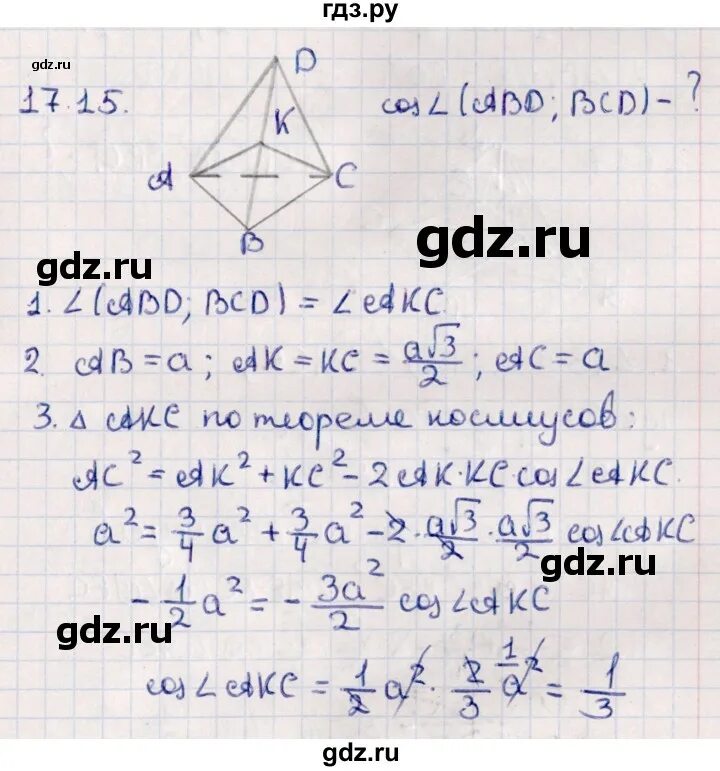 гдз.ру
gdz.ru
17.15.
D
K
A
C
B
cos∠(ABD; BCD) - ?
gdz.ru
gdz.ru
1. ∠(ABD; BCD) = ∠AKC.
2. AB = a; AK = KC = a√3/2; AC = a
3. Δ AKC по теореме косинусов:
AC² = AK² + KC² - 2AK·KC cos∠AKC.
a² = 3/4 a² + 3/4 a² - 2 · a√3/2 · a√3/2 cos∠AKC
gdz.ru
- 1/2 a² = - 3a²/2 cos∠AKC
gdz.ru
cos∠AKC = 1/2 a² · 2/3 1/a² = 1/3
gdz.ru